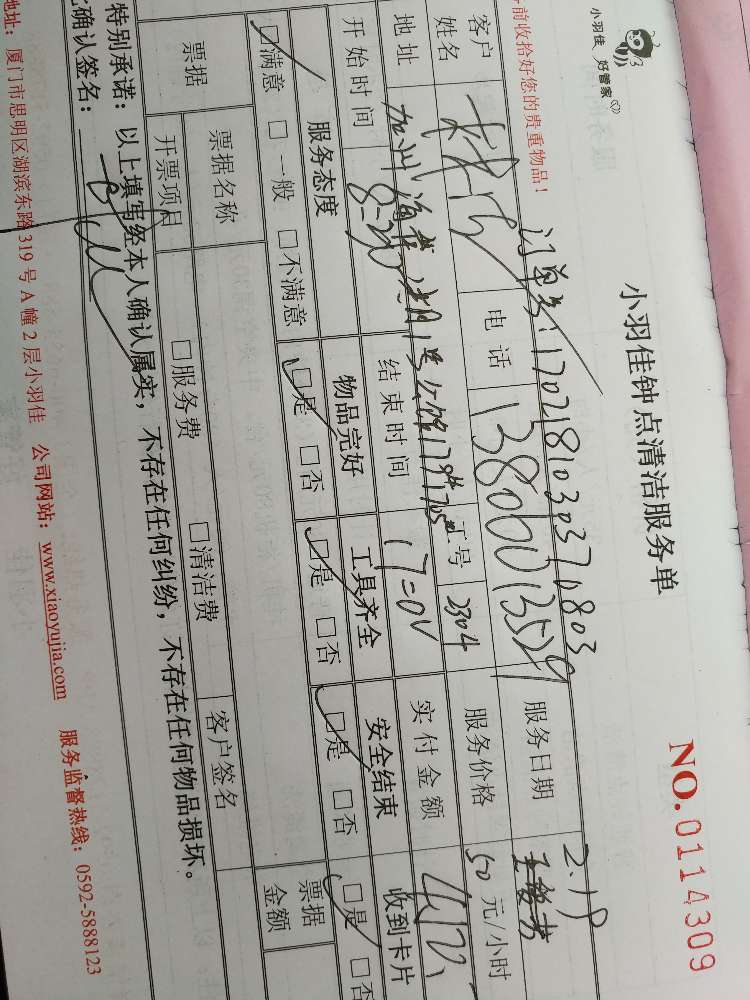 小羽佳 好管家
小羽佳钟点清洁服务单
NO.0114309
前收拾好您的贵重物品!
订单号:17021810303070803
客户姓名
电话 13806013529
服务日期 2.18
地址
工号 2304
服务价格 50元/小时
开始时间 8=30
结束时间 17=00
实付金额
服务态度 物品完好 工具齐全 安全结束 收到卡片
☑满意 □一般 □不满意 ☑是 □否 ☑是 □否 ☑是 □否 ☑是 □否
票据 票据名称 □服务费 □清洁费 客户签名 票据金额
开票项目
特别承诺:以上填写经本人确认属实,不存在任何纠纷,不存在任何物品损坏。
确认签名:
地址:厦门市思明区湖滨东路319号A幢2层小羽佳 公司网站:www.xiaoyujia.com 服务监督热线:0592-5888123